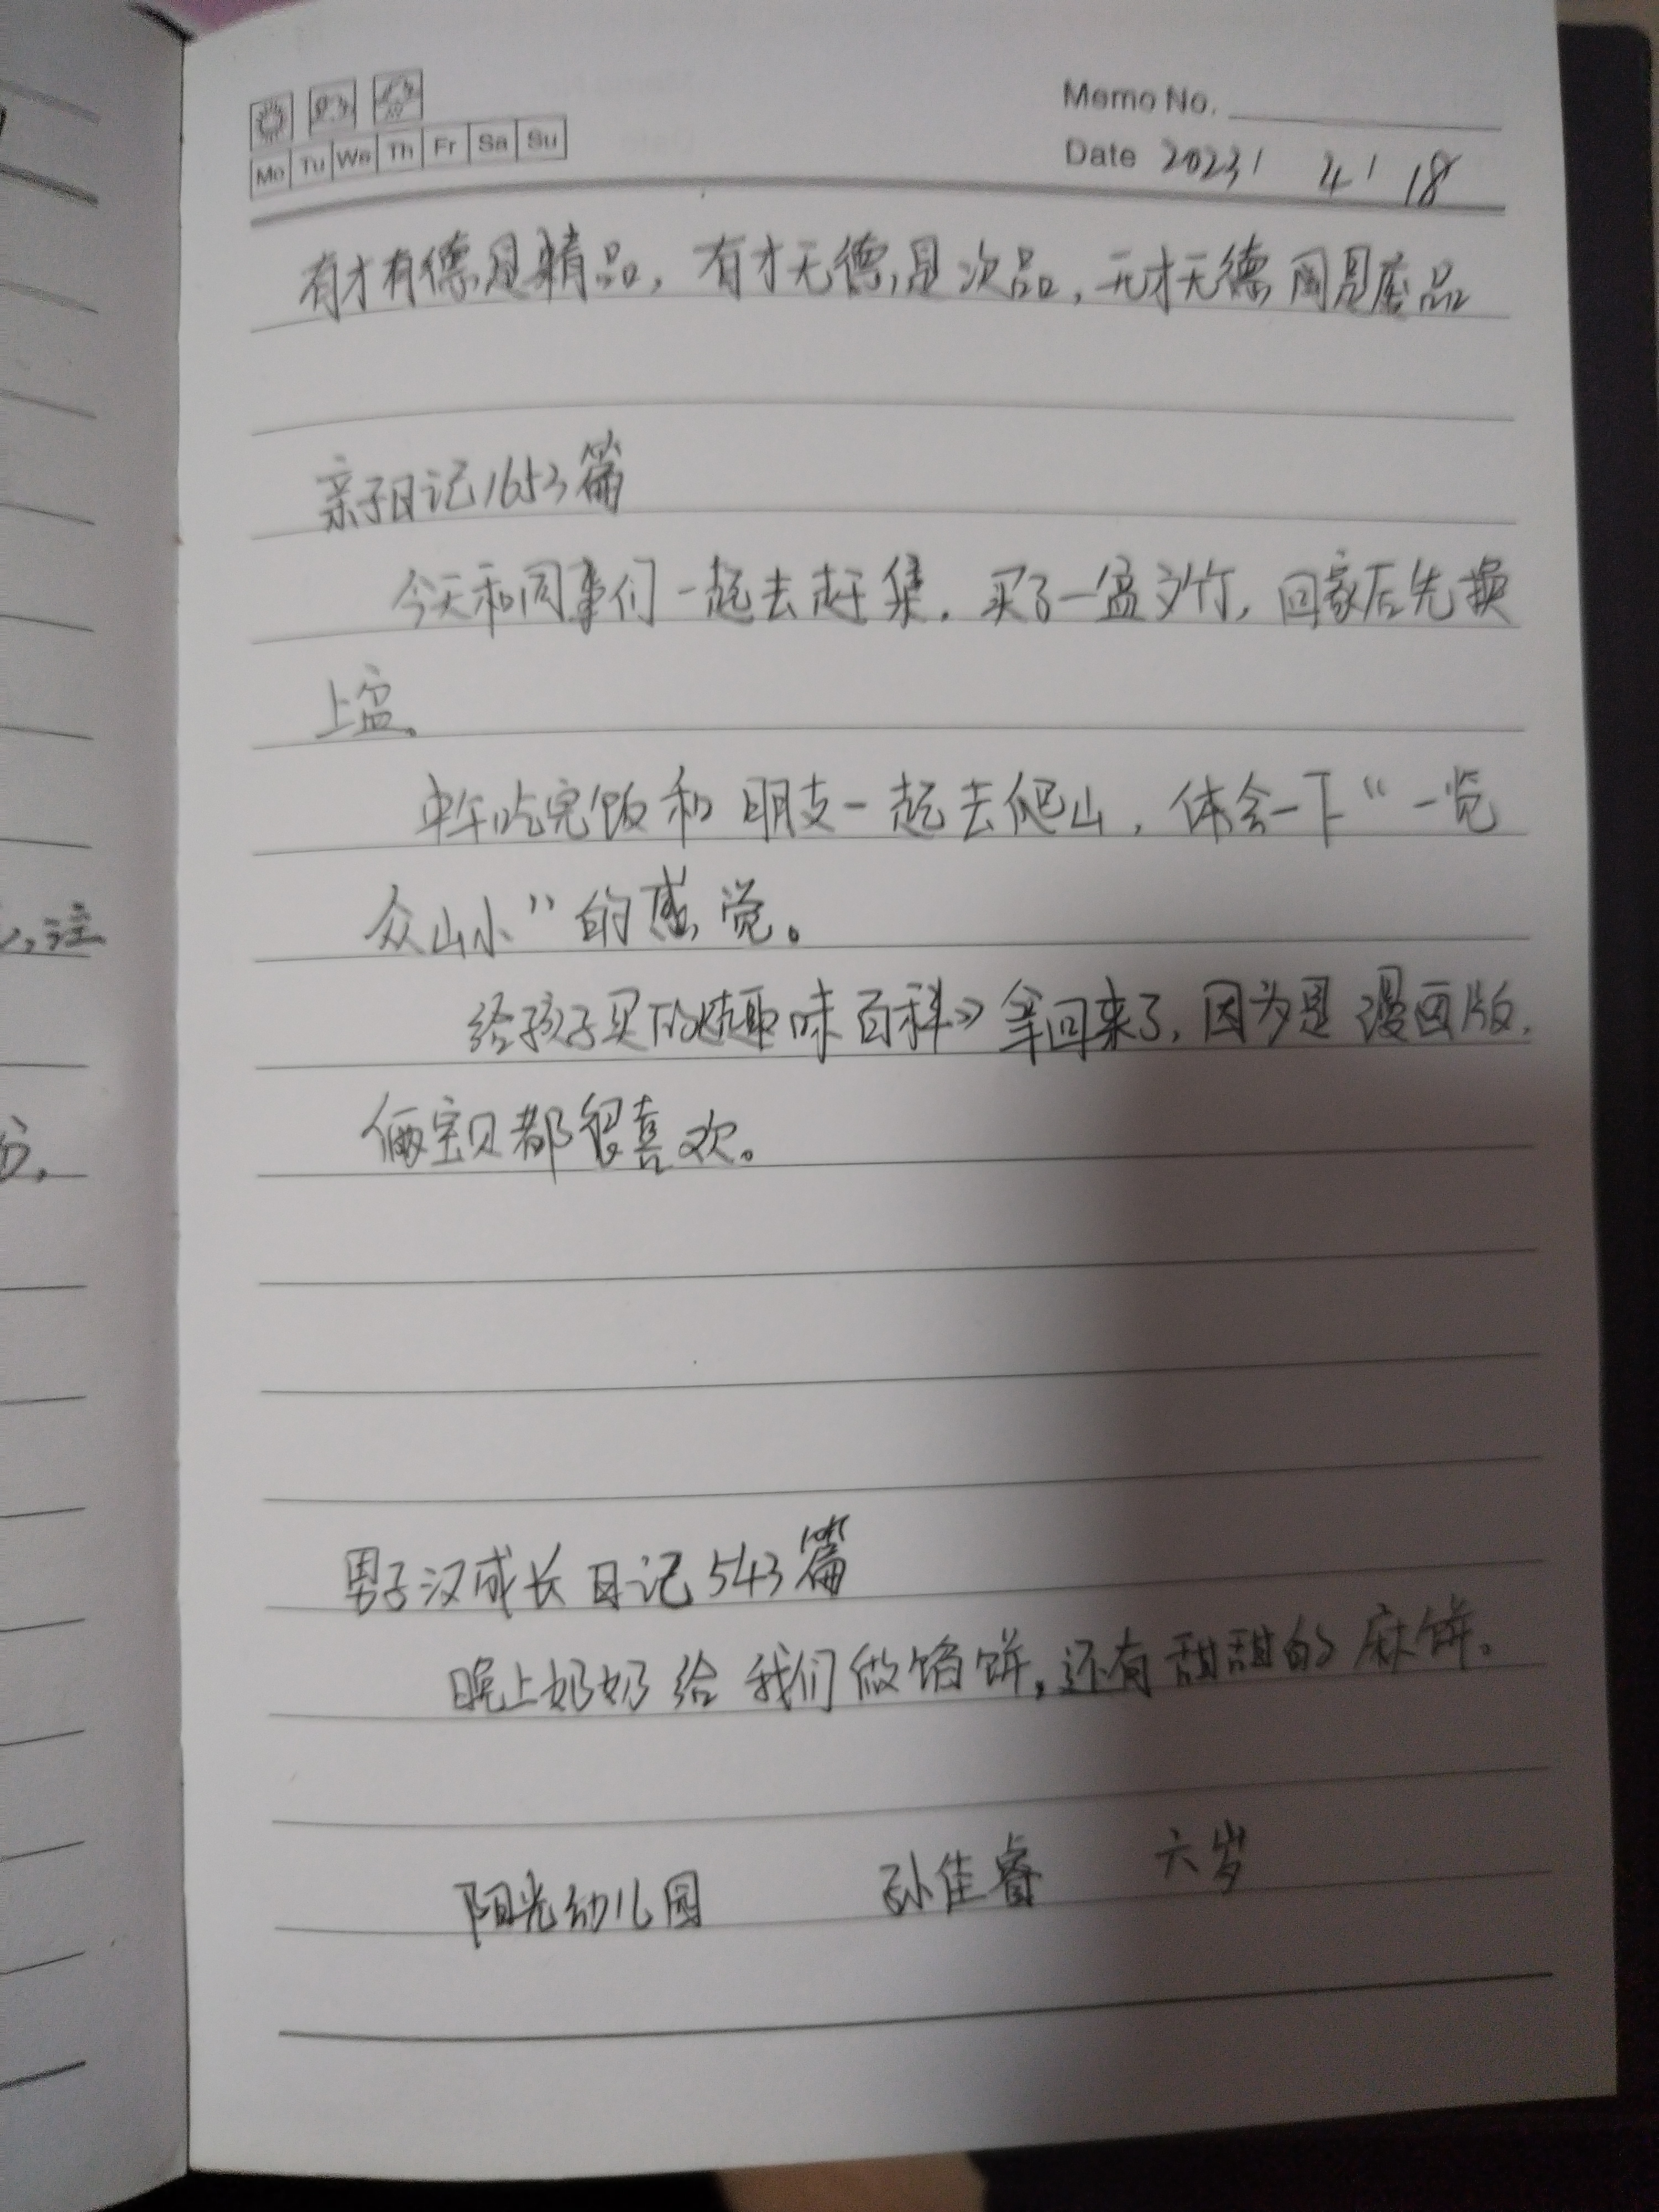 Memo No.
Mo Tu We Th Fr Sa Su
Date 2023/ 4/ 18
有才有德是精品，有才无德是次品，无才无德同是废品
亲子日记1653篇
今天和同事们一起去赶集，买了一盆文竹，回家后先换
上盆。
中午吃完饭和朋友一起去爬山，体会一下“一览
众山小”的感觉。
给孩子买的《趣味百科》拿回来了，因为是漫画版，
俩宝贝都很喜欢。
男子汉成长日记543篇
晚上奶奶给我们做馅饼，还有甜甜的麻饼。
阳光幼儿园 孙佳睿 六岁